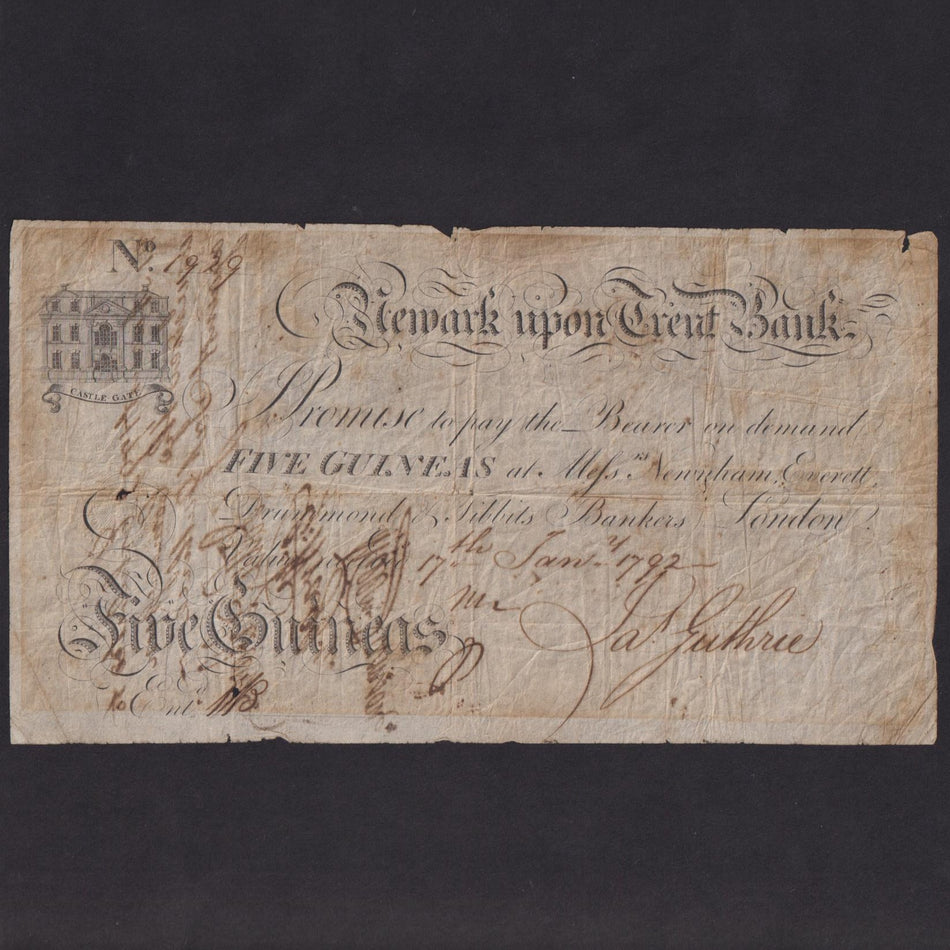 No. 1929
CASTLE GATE
Newark upon Trent Bank
I Promise to pay the Bearer on demand
FIVE GUINEAS at Messrs Newnham, Everett,
Drummond & Tibbits Bankers London
Value 17th Jany 1792
Five Guineas
Jas Guthrie
Entd